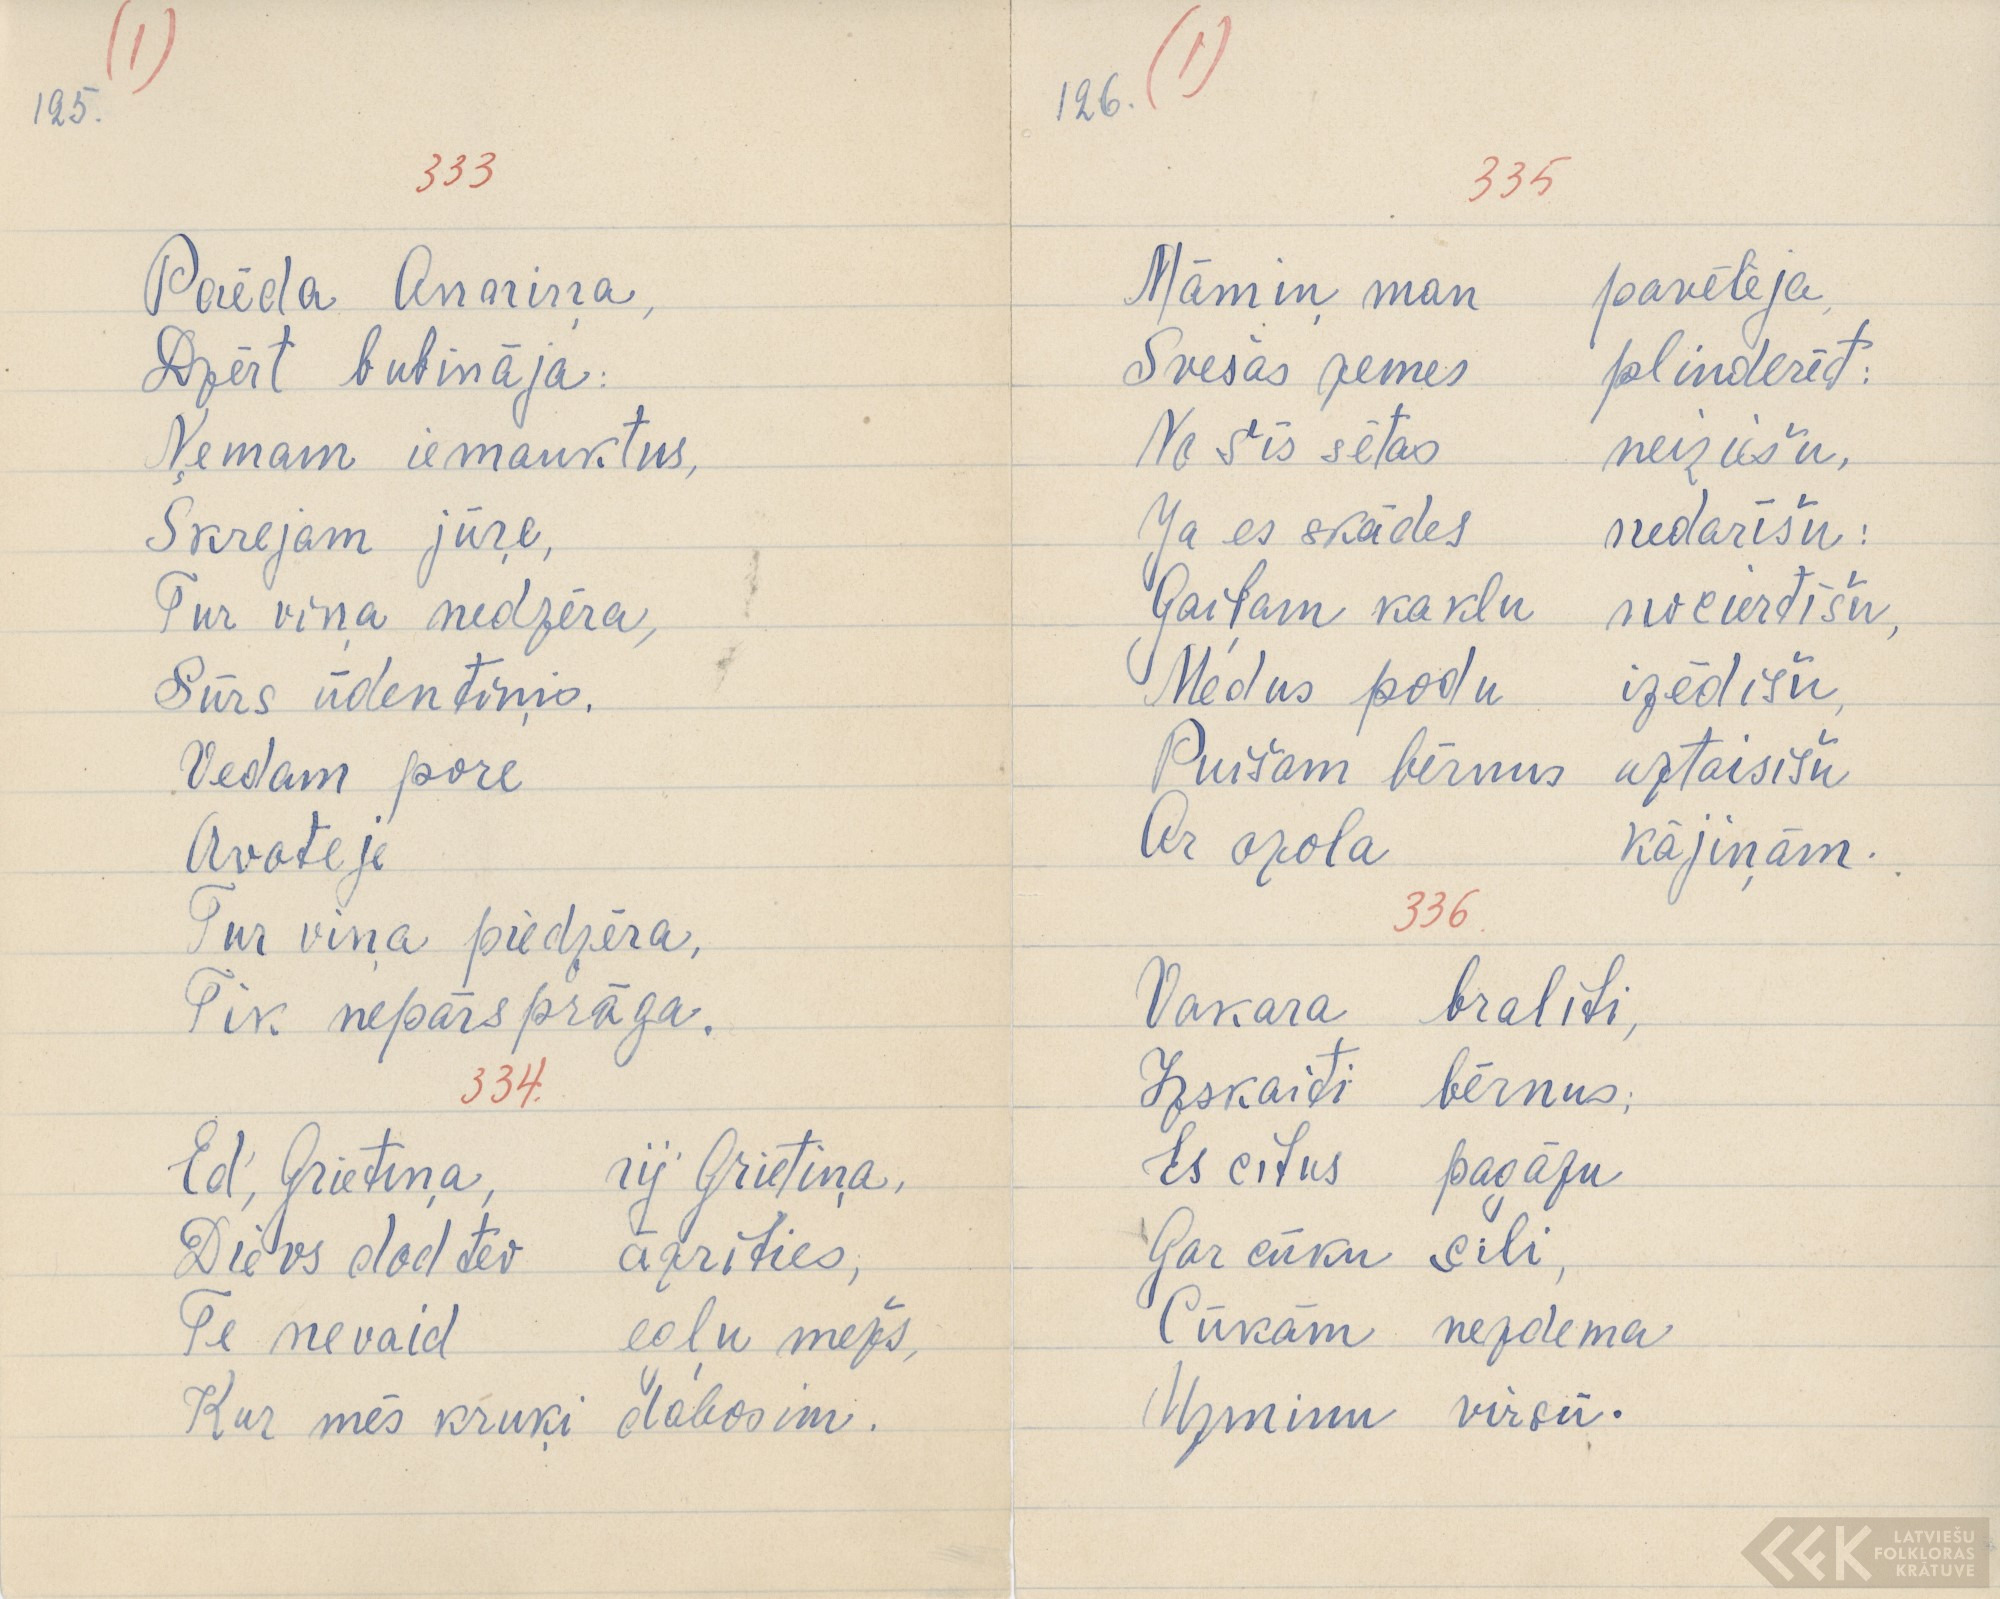 (1)
125.
333
Paēda Anniņa,
Dzērt bubināja:
Ņemam iemauktus,
Skrejam jūŗe,
Tur viņa nedzēra,
Sūrs ūdentiņis.
Vedam pore
Avoteje
Tur viņa piedzēra,
Tik nepārsprāga.
334.
Ed', Grietiņa, rij' Grietiņa,
Dievs dod tev āzrīties,
Te nevaid egļu mežs,
Kur mēs kruķi dabosim.
126. (1)
335
Māmiņ man pavēlēja,
Svešas zemes plinderēt:
No šīs sētas neiziešu,
Ja es skādes nedarīšu:
Gaiļam kaklu nocirtīšu,
Medus podu izēdišu,
Puišam bērnus uztaisišu
Ar ozola kājiņām.
336.
Vakara braliti,
Izskaiti bērnus;
Es citus pagāzu
Gar cūku sili,
Cūkām nezdema
Uzminu virsū.
LATVIEŠU
FOLKLORAS
KRĀTUVE